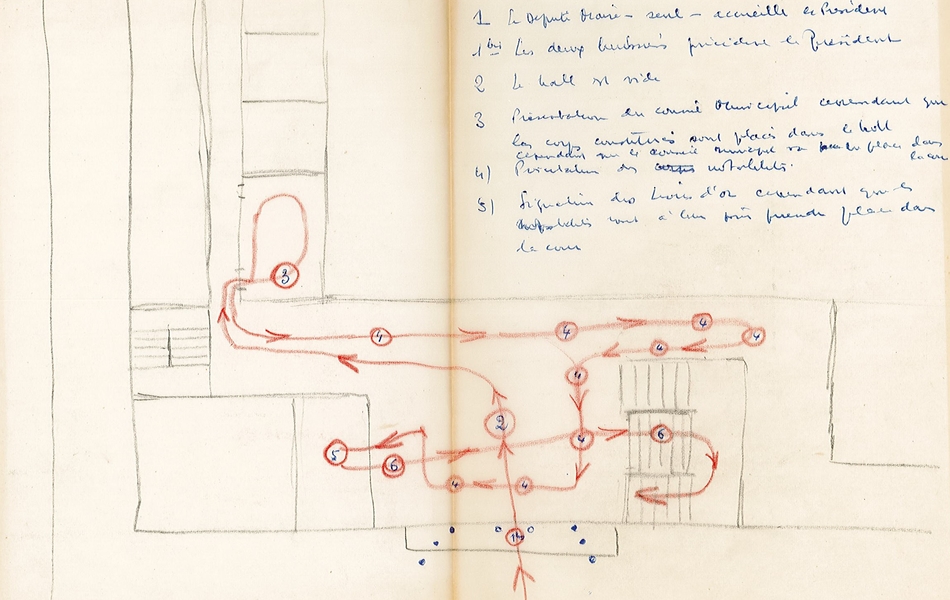 1 Le Député Maire - seul - accueille le Président
1 bis Les deux huissiers précèdent le Président
2 Le hall est vide
3 Présentation du conseil Municipal cependant que
les corps constitués sont placés dans le hall
cependant que le conseil municipal va prendre place dans
la cour
4) Présentation des corps notabilités.
5) Signature des livres d'or cependant que les
notabilités vont à leur tour prendre place dans
la cour
3
4
4
4
4
4
4
2
4
6
5
6
4
4
1bis